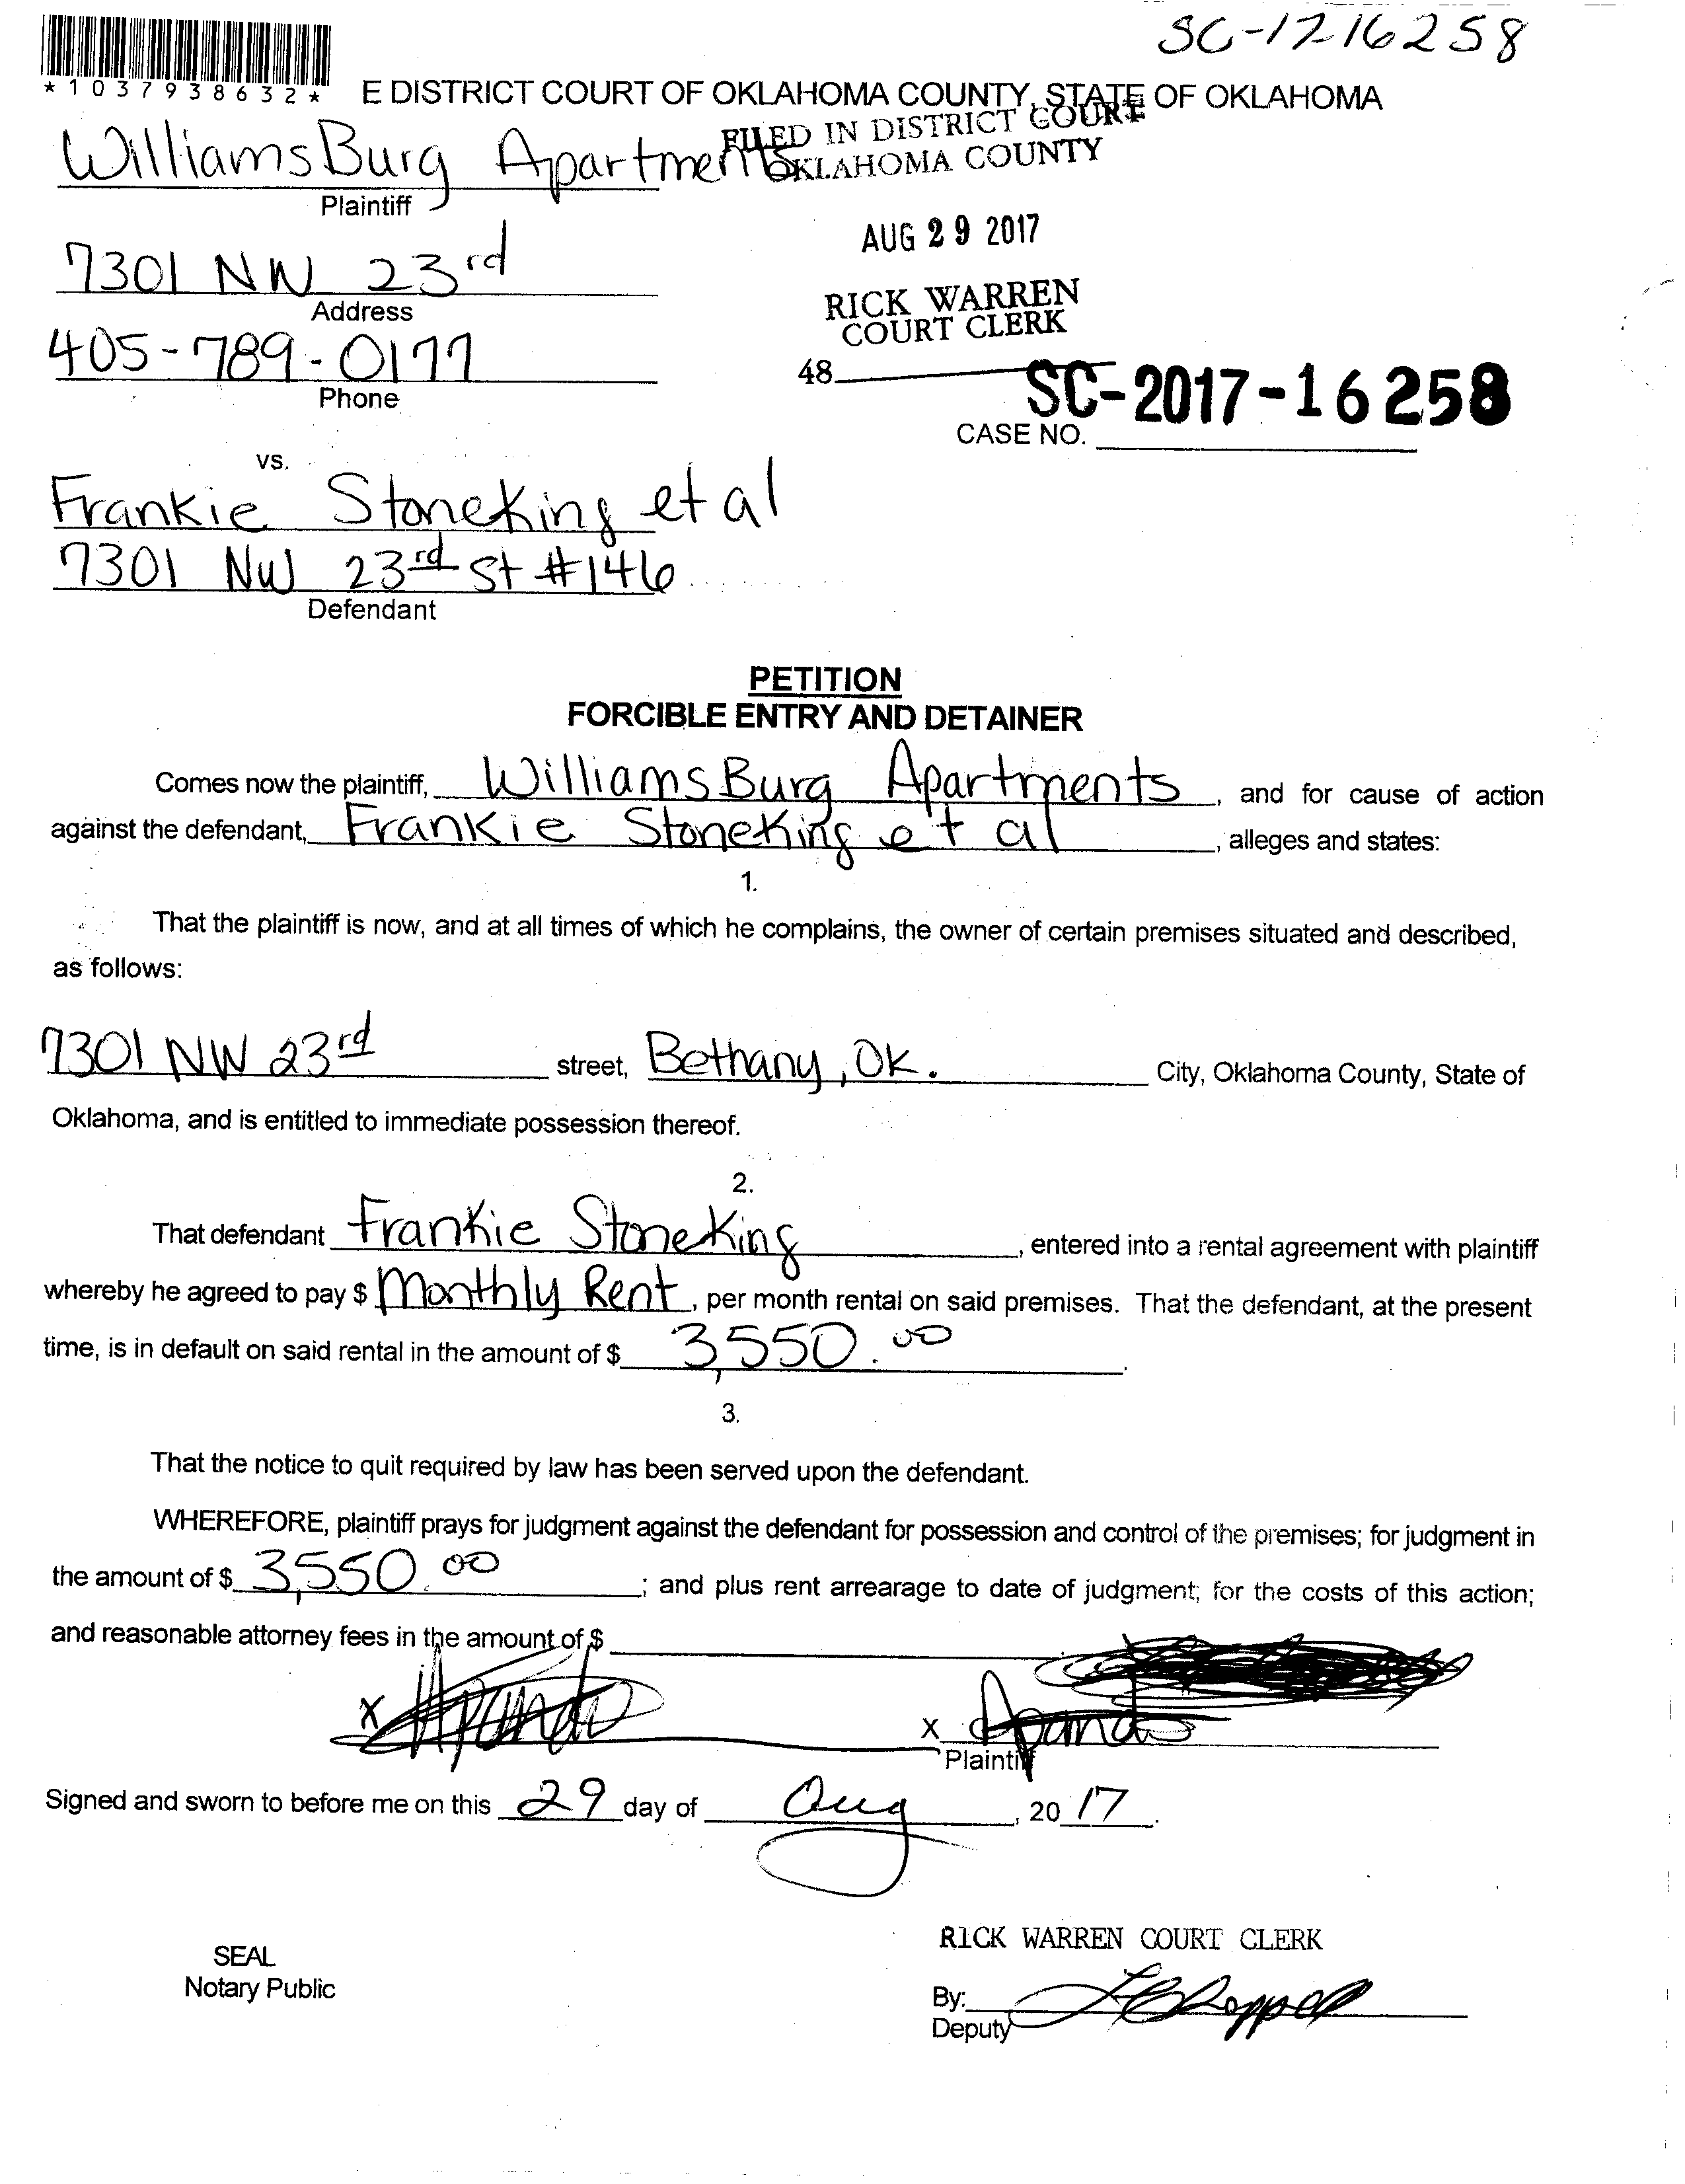 SC-1716258
*1037938632*
E DISTRICT COURT OF OKLAHOMA COUNTY, STATE OF OKLAHOMA
FILED IN DISTRICT COURT
OKLAHOMA COUNTY
WilliamsBurg Apartments
Plaintiff
AUG 29 2017
7301 NW 23rd
Address
RICK WARREN
COURT CLERK
405-789-0177
Phone
48
SC-2017-16258
CASE NO.
vs.
Frankie Stoneking et al
7301 NW 23rd St #146
Defendant
PETITION
FORCIBLE ENTRY AND DETAINER
Comes now the plaintiff, WilliamsBurg Apartments, and for cause of action
against the defendant, Frankie Stoneking et al, alleges and states:
1.
That the plaintiff is now, and at all times of which he complains, the owner of certain premises situated and described,
as follows:
7301 NW 23rd street, Bethany, OK. City, Oklahoma County, State of
Oklahoma, and is entitled to immediate possession thereof.
2.
That defendant Frankie Stoneking, entered into a rental agreement with plaintiff
whereby he agreed to pay $ Monthly Rent, per month rental on said premises. That the defendant, at the present
time, is in default on said rental in the amount of $ 3,550.00.
3.
That the notice to quit required by law has been served upon the defendant.
WHEREFORE, plaintiff prays for judgment against the defendant for possession and control of the premises; for judgment in
the amount of $ 3,550.00; and plus rent arrearage to date of judgment; for the costs of this action;
and reasonable attorney fees in the amount of $
x x
Plaintiff
Signed and sworn to before me on this 29 day of Aug, 2017.
RICK WARREN COURT CLERK
SEAL
Notary Public
By:
Deputy